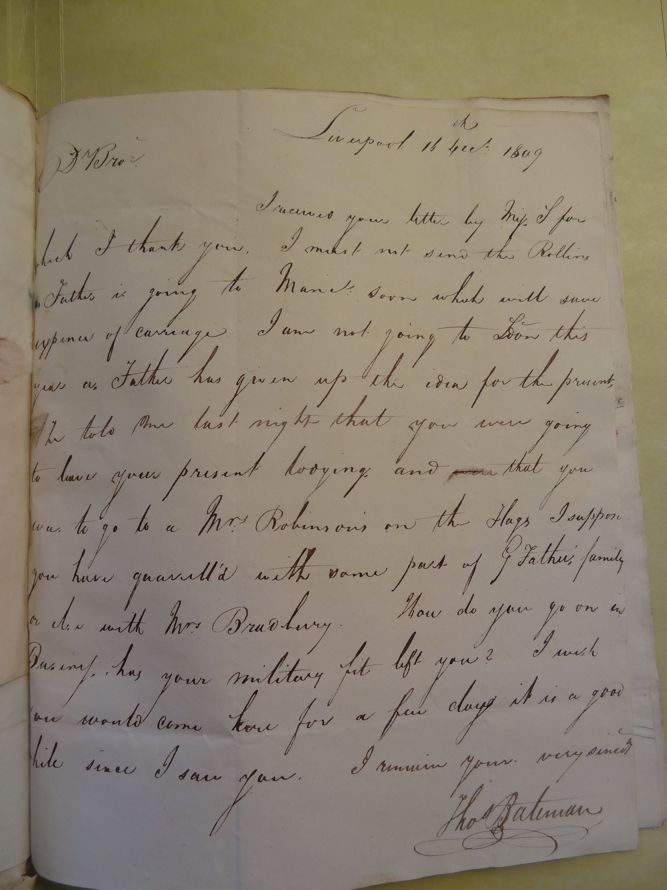 Liverpool 11th Decr. 1809
Dr. Bror.
I received your letter by Miss S for
which I thank you. I must not send the Rollins
Father is going to Manr. soon which will save
expence of carriage I am not going to Ldon this
year as Father has given up the idea for the present,
He told me last night that you were going
to leave your present lodgings and that you
was to go to a Mrs. Robinson's on the Hags I suppose
you have quarell'd with some part of G Father's family
or else with Mrs. Bradbury. How do you go on in
Business. has your military fit left you? I wish
you would come here for a few days it is a good
while since I saw you. I remain your very sincerely
Thos. Bateman